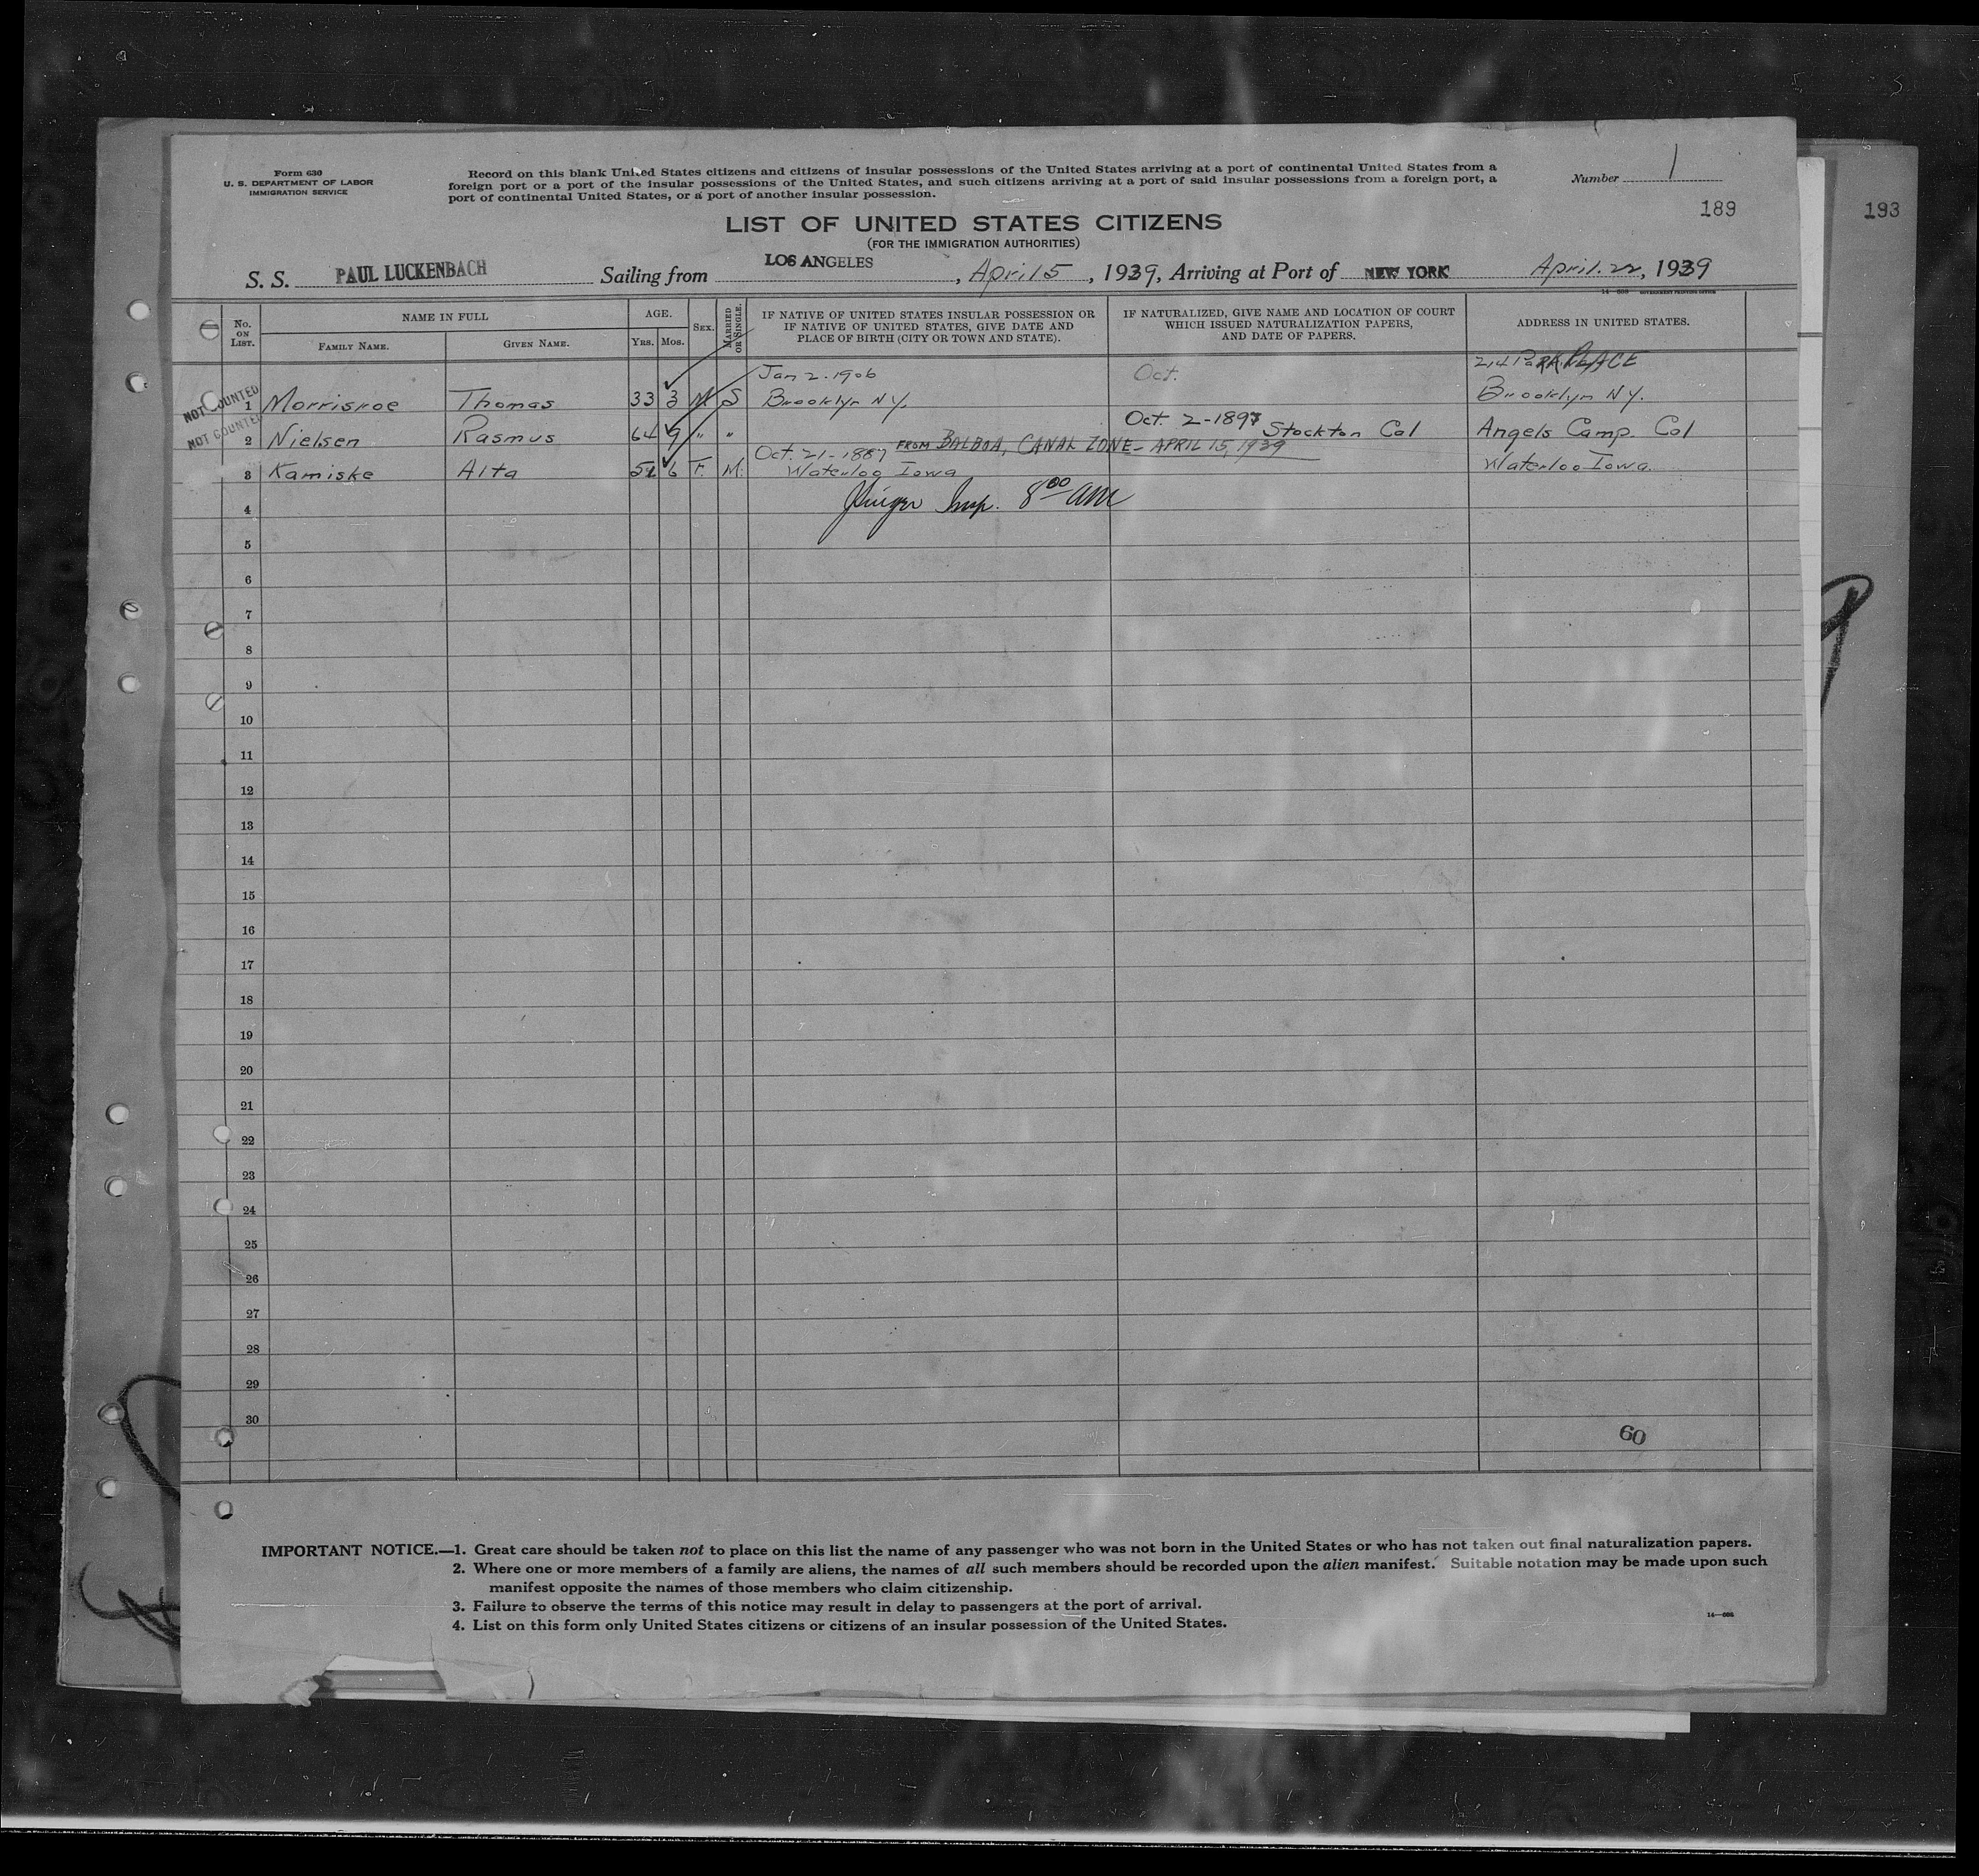 Form 630
U. S. DEPARTMENT OF LABOR
IMMIGRATION SERVICE
Record on this blank United States citizens and citizens of insular possessions of the United States arriving at a port of continental United States from a
foreign port or a port of the insular possessions of the United States, and such citizens arriving at a port of said insular possessions from a foreign port, a
port of continental United States, or a port of another insular possession.
Number 1
189
193
LIST OF UNITED STATES CITIZENS
(FOR THE IMMIGRATION AUTHORITIES)
S. S. PAUL LUCKENBACH Sailing from LOS ANGELES, April 5, 1939, Arriving at Port of NEW YORK April. 22, 1939
No. ON LIST.
NAME IN FULL
FAMILY NAME.
GIVEN NAME.
AGE.
YRS.
MOS.
SEX.
MARRIED OR SINGLE.
IF NATIVE OF UNITED STATES INSULAR POSSESSION OR
IF NATIVE OF UNITED STATES, GIVE DATE AND
PLACE OF BIRTH (CITY OR TOWN AND STATE).
IF NATURALIZED, GIVE NAME AND LOCATION OF COURT
WHICH ISSUED NATURALIZATION PAPERS,
AND DATE OF PAPERS.
ADDRESS IN UNITED STATES.
Jan 2. 1906 Oct. PARK PLACE
NOT COUNTED 1 Morrisroe Thomas 33 3 M. S Brooklyn NY. Brooklyn NY.
NOT COUNTED 2 Nielsen Rasmus 64 9 " " Oct. 2-1897 Stockton Cal Angels Camp. Cal
FROM BALBOA, CANAL ZONE - APRIL 15, 1939
Oct. 21-1887
3 Kamiske Alta 51 6 F. M. Waterloo Iowa Waterloo Iowa.
4 Insp. 8⁰⁰ am
5
6
7
8
9
10
11
12
13
14
15
16
17
18
19
20
21
22
23
24
25
26
27
28
29
30
60
IMPORTANT NOTICE.—1. Great care should be taken not to place on this list the name of any passenger who was not born in the United States or who has not taken out final naturalization papers.
2. Where one or more members of a family are aliens, the names of all such members should be recorded upon the alien manifest. Suitable notation may be made upon such
manifest opposite the names of those members who claim citizenship.
3. Failure to observe the terms of this notice may result in delay to passengers at the port of arrival.
4. List on this form only United States citizens or citizens of an insular possession of the United States.